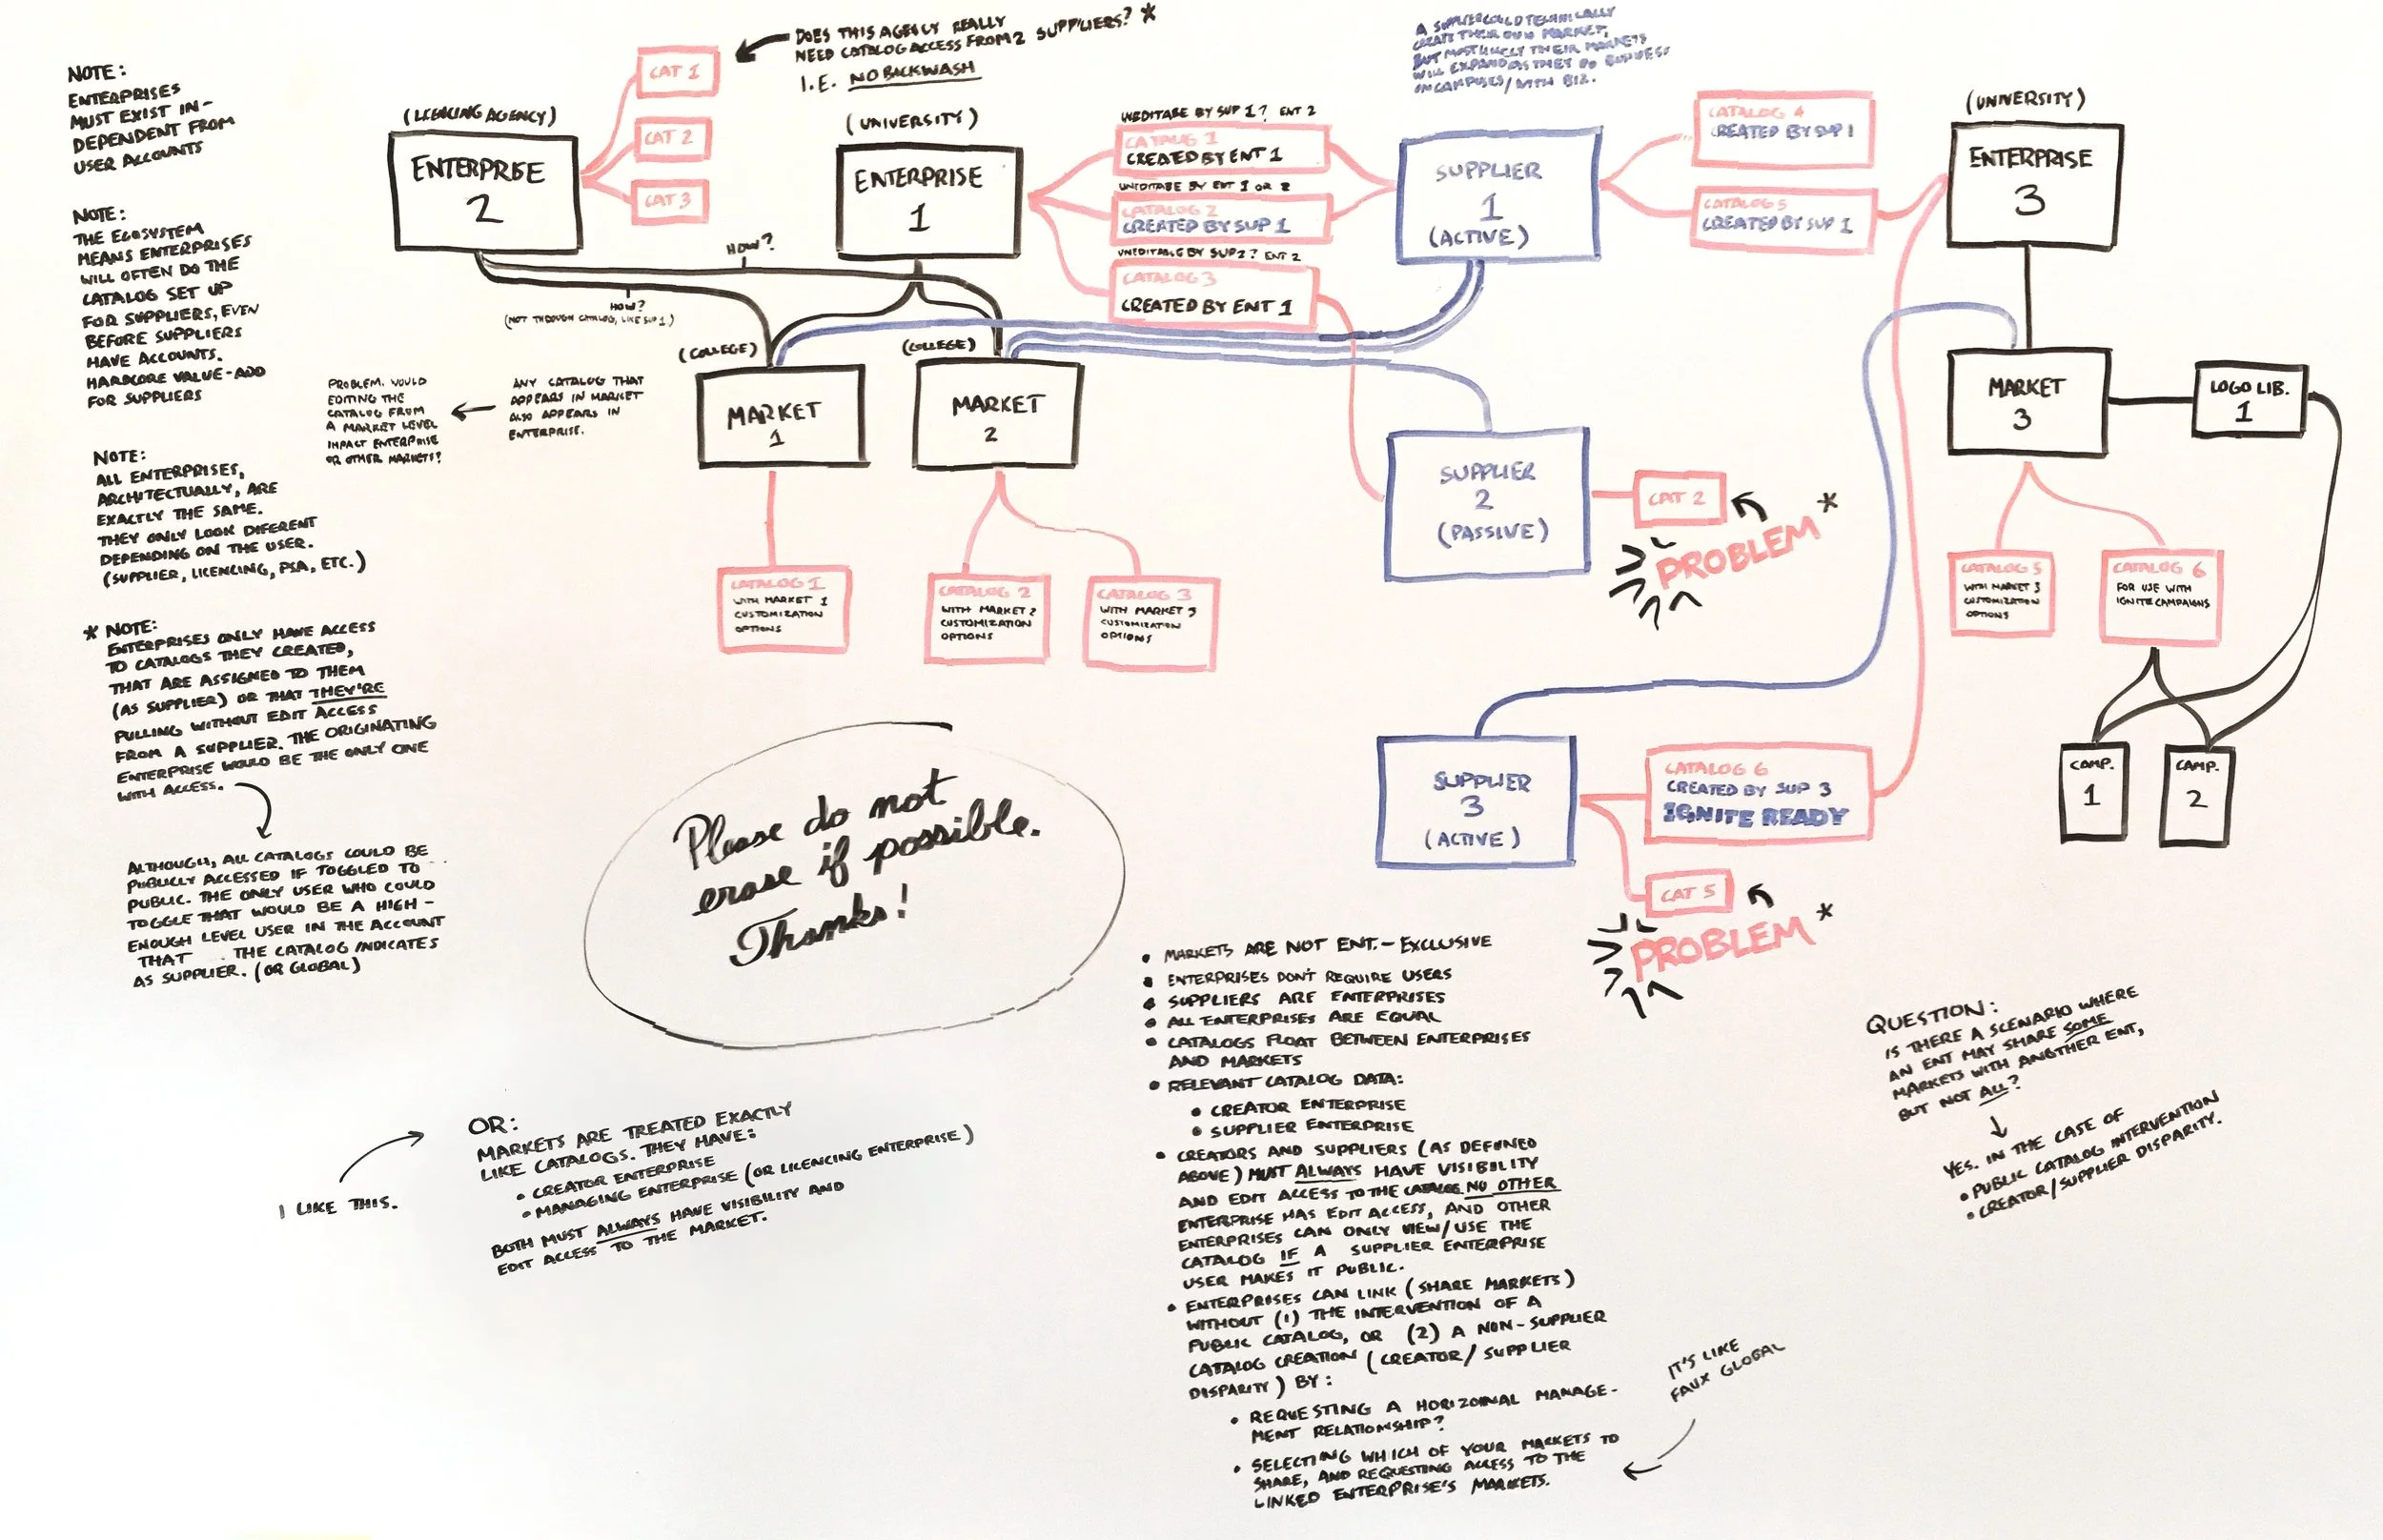 NOTE:
ENTERPRISES
MUST EXIST IN-
DEPENDENT FROM
USER ACCOUNTS
NOTE:
THE ECOSYSTEM
MEANS ENTERPRISES
WILL OFTEN DO THE
CATALOG SET UP
FOR SUPPLIERS, EVEN
BEFORE SUPPLIERS
HAVE ACCOUNTS.
HARDCORE VALUE-ADD
FOR SUPPLIERS
NOTE:
ALL ENTERPRISES,
ARCHITECTUALLY, ARE
EXACTLY THE SAME.
THEY ONLY LOOK DIFERENT
DEPENDING ON THE USER.
(SUPPLIER, LICENCING, PSA, ETC.)
* NOTE:
ENTERPRISES ONLY HAVE ACCESS
TO CATALOGS THEY CREATED,
THAT ARE ASSIGNED TO THEM
(AS SUPPLIER) OR THAT THEY'RE
PULLING WITHOUT EDIT ACCESS
FROM A SUPPLIER. THE ORIGINATING
ENTERPRISE WOULD BE THE ONLY ONE
WITH ACCESS.
ALTHOUGH, ALL CATALOGS COULD BE
PUBLICLY ACCESSED IF TOGGLED TO
PUBLIC. THE ONLY USER WHO COULD
TOGGLE THAT WOULD BE A HIGH-
ENOUGH LEVEL USER IN THE ACCOUNT
THAT THE CATALOG INDICATES
AS SUPPLIER. (OR GLOBAL)
PROBLEM. WOULD
EDITING THE
CATALOG FROM
A MARKET LEVEL
IMPACT ENTERPRISE
OR OTHER MARKETS?
ANY CATALOG THAT
APPEARS IN MARKET
ALSO APPEARS IN
ENTERPRISE.
(LICENCING AGENCY)
ENTERPRISE
2
CAT 1
CAT 2
CAT 3
DOES THIS AGENCY REALLY
NEED CATALOG ACCESS FROM 2 SUPPLIERS? *
I.E. NO BACKWASH
(UNIVERSITY)
ENTERPRISE
1
HOW?
HOW?
(NOT THROUGH CATALOG, LIKE SUP 1.)
UNEDITABE BY SUP 1? ENT 2
CATALOG 1
CREATED BY ENT 1
UNEDITABE BY ENT 1 OR 2
CATALOG 2
CREATED BY SUP 1
UNEDITABLE BY SUP 2? ENT 2
CATALOG 3
CREATED BY ENT 1
A SUPPLIER COULD TECHNICALLY
CREATE THEIR OWN MARKET,
BUT MOST LIKELY THEIR MARKETS
WILL EXPAND AS THEY DO BUSINESS
ON CAMPUSES/ WITH BIZ.
SUPPLIER
1
(ACTIVE)
CATALOG 4
CREATED BY SUP 1
CATALOG 5
CREATED BY SUP 1
(UNIVERSITY)
ENTERPRISE
3
(COLLEGE)
MARKET
1
(COLLEGE)
MARKET
2
CATALOG 1
WITH MARKET 1
CUSTOMIZATION
OPTIONS
CATALOG 2
WITH MARKET 2
CUSTOMIZATION
OPTIONS
CATALOG 3
WITH MARKET 3
CUSTOMIZATION
OPTIONS
SUPPLIER
2
(PASSIVE)
CAT 2
PROBLEM *
MARKET
3
LOGO LIB.
1
CATALOG 5
WITH MARKET 3
CUSTOMIZATION
OPTIONS
CATALOG 6
FOR USE WITH
IGNITE CAMPAIGNS
CAMP.
1
CAMP.
2
SUPPLIER
3
(ACTIVE)
CATALOG 6
CREATED BY SUP 3
IGNITE READY
CAT 5
PROBLEM *
Please do not
erase if possible.
Thanks!
I LIKE THIS.
OR:
MARKETS ARE TREATED EXACTLY
LIKE CATALOGS. THEY HAVE:
• CREATOR ENTERPRISE
• MANAGING ENTERPRISE (OR LICENCING ENTERPRISE)
BOTH MUST ALWAYS HAVE VISIBILITY AND
EDIT ACCESS TO THE MARKET.
• MARKETS ARE NOT ENT.-EXCLUSIVE
• ENTERPRISES DON'T REQUIRE USERS
• SUPPLIERS ARE ENTERPRISES
• ALL ENTERPRISES ARE EQUAL
• CATALOGS FLOAT BETWEEN ENTERPRISES
AND MARKETS
• RELEVANT CATALOG DATA:
• CREATOR ENTERPRISE
• SUPPLIER ENTERPRISE
• CREATORS AND SUPPLIERS (AS DEFINED
ABOVE) MUST ALWAYS HAVE VISIBILITY
AND EDIT ACCESS TO THE CATALOG. NO OTHER
ENTERPRISE HAS EDIT ACCESS, AND OTHER
ENTERPRISES CAN ONLY VIEW/USE THE
CATALOG IF A SUPPLIER ENTERPRISE
USER MAKES IT PUBLIC.
• ENTERPRISES CAN LINK (SHARE MARKETS)
WITHOUT (1) THE INTERVENTION OF A
PUBLIC CATALOG, OR (2) A NON-SUPPLIER
CATALOG CREATION (CREATOR/SUPPLIER
DISPARITY) BY:
• REQUESTING A HORIZOINAL MANAGE-
MENT RELATIONSHIP?
• SELECTING WHICH OF YOUR MARKETS TO
SHARE, AND REQUESTING ACCESS TO THE
LINKED ENTERPRISE'S MARKETS.
IT'S LIKE
FAUX GLOBAL
QUESTION:
IS THERE A SCENARIO WHERE
AN ENT MAY SHARE SOME
MARKETS WITH ANOTHER ENT,
BUT NOT ALL?
YES. IN THE CASE OF
• PUBLIC CATALOG INTERVENTION
• CREATOR/SUPPLIER DISPARITY.